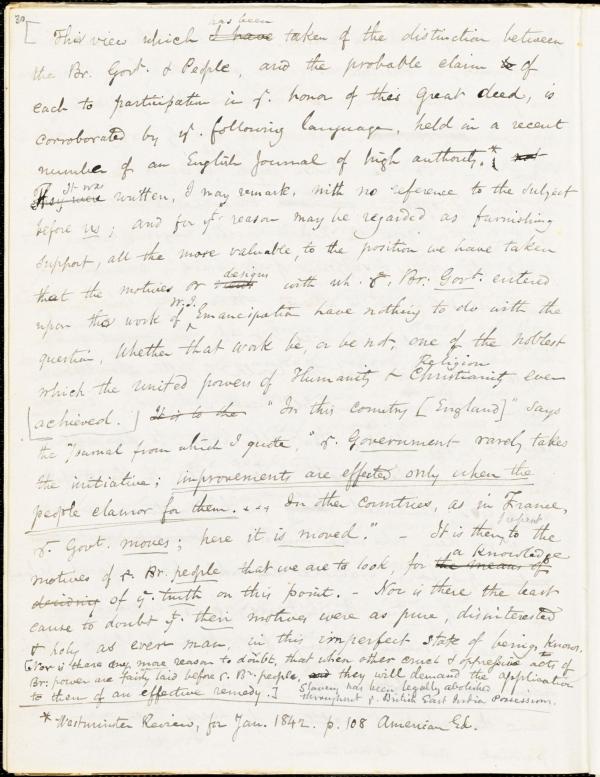 30
has been
[ This view which I have taken of the distinction between
the Br. Govt. & People, and the probable claim to of
each to participation in ye. honor of this great deed, is
corroborated by ye. following language, held in a recent
number of an English Journal of high authority.*
It was
written, I may remark, with no reference to the subject
before us; and for yt. reason may be regarded as furnishing
support, all the more valuable, to the position we have taken
designs
that the motives or with wh. ye. Br: Govt. entered
W. I.
upon the work of Emancipation have nothing to do with the
question, Whether that work be, or be not, one of the noblest
Religion
which the united powers of Humanity & Christianity ever
achieved. ] It is to the "In this country [England]" says
the "Journal from which I quote," "ye. Government rarely takes
the initiative; improvements are effected only when the
people clamor for them. * * * In other countries, as in France,
ye. Govt. moves; here it is moved." – It is then, to the
I repeat
a knowledge
motives of ye. Br. people that we are to look, for the means of
deciding of ye. truth on this point. – Nor is there the least
cause to doubt yt. their motives were as pure, disinterested
& holy as ever man, in this imperfect state of being, knows.
[Nor is there any more reason to doubt, that when other cruel & oppressive acts of
Br: power are fairly laid before ye. Br. people, and they will demand the application
to them of an effective remedy.] Slavery has been legally abolished
throughout ye. British East India Possessions.
* Westminster Review, for Jan. 1842. p. 108 American Ed.